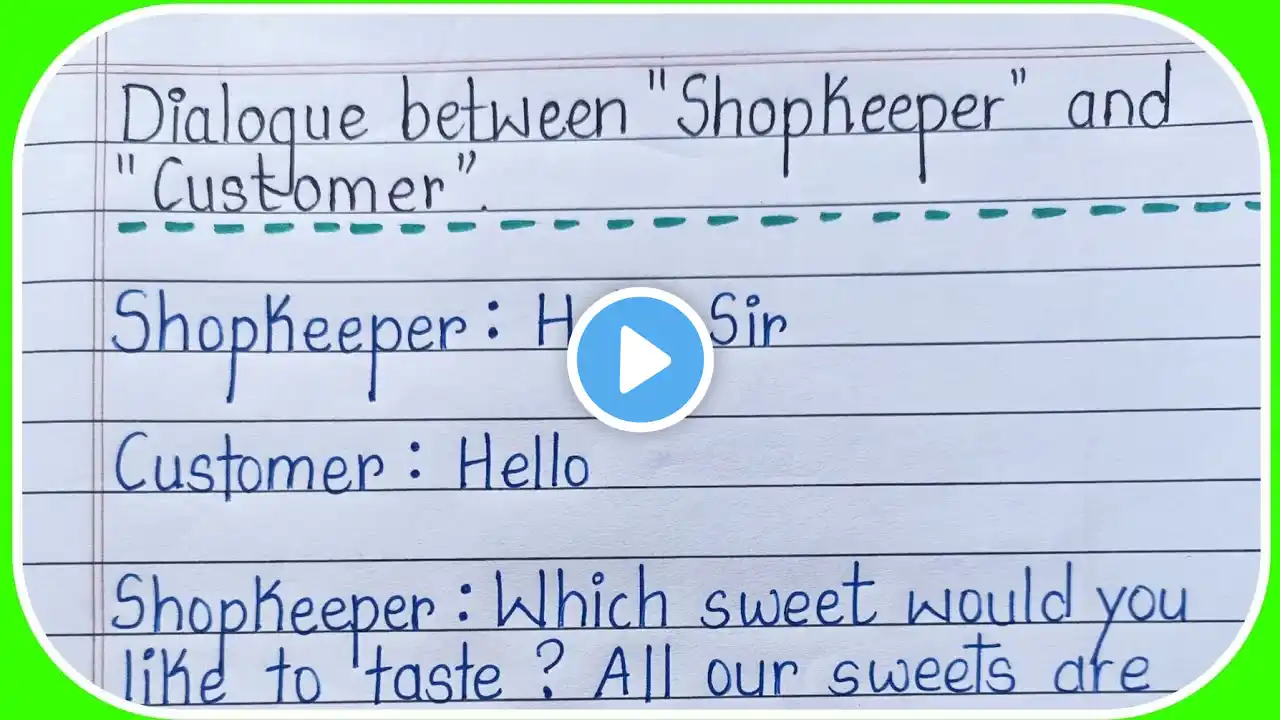 Dialogue between "Shopkeeper" and
"Customer".
Shopkeeper : Sir
Customer : Hello
Shopkeeper : Which sweet would you
like to taste ? All our sweets are